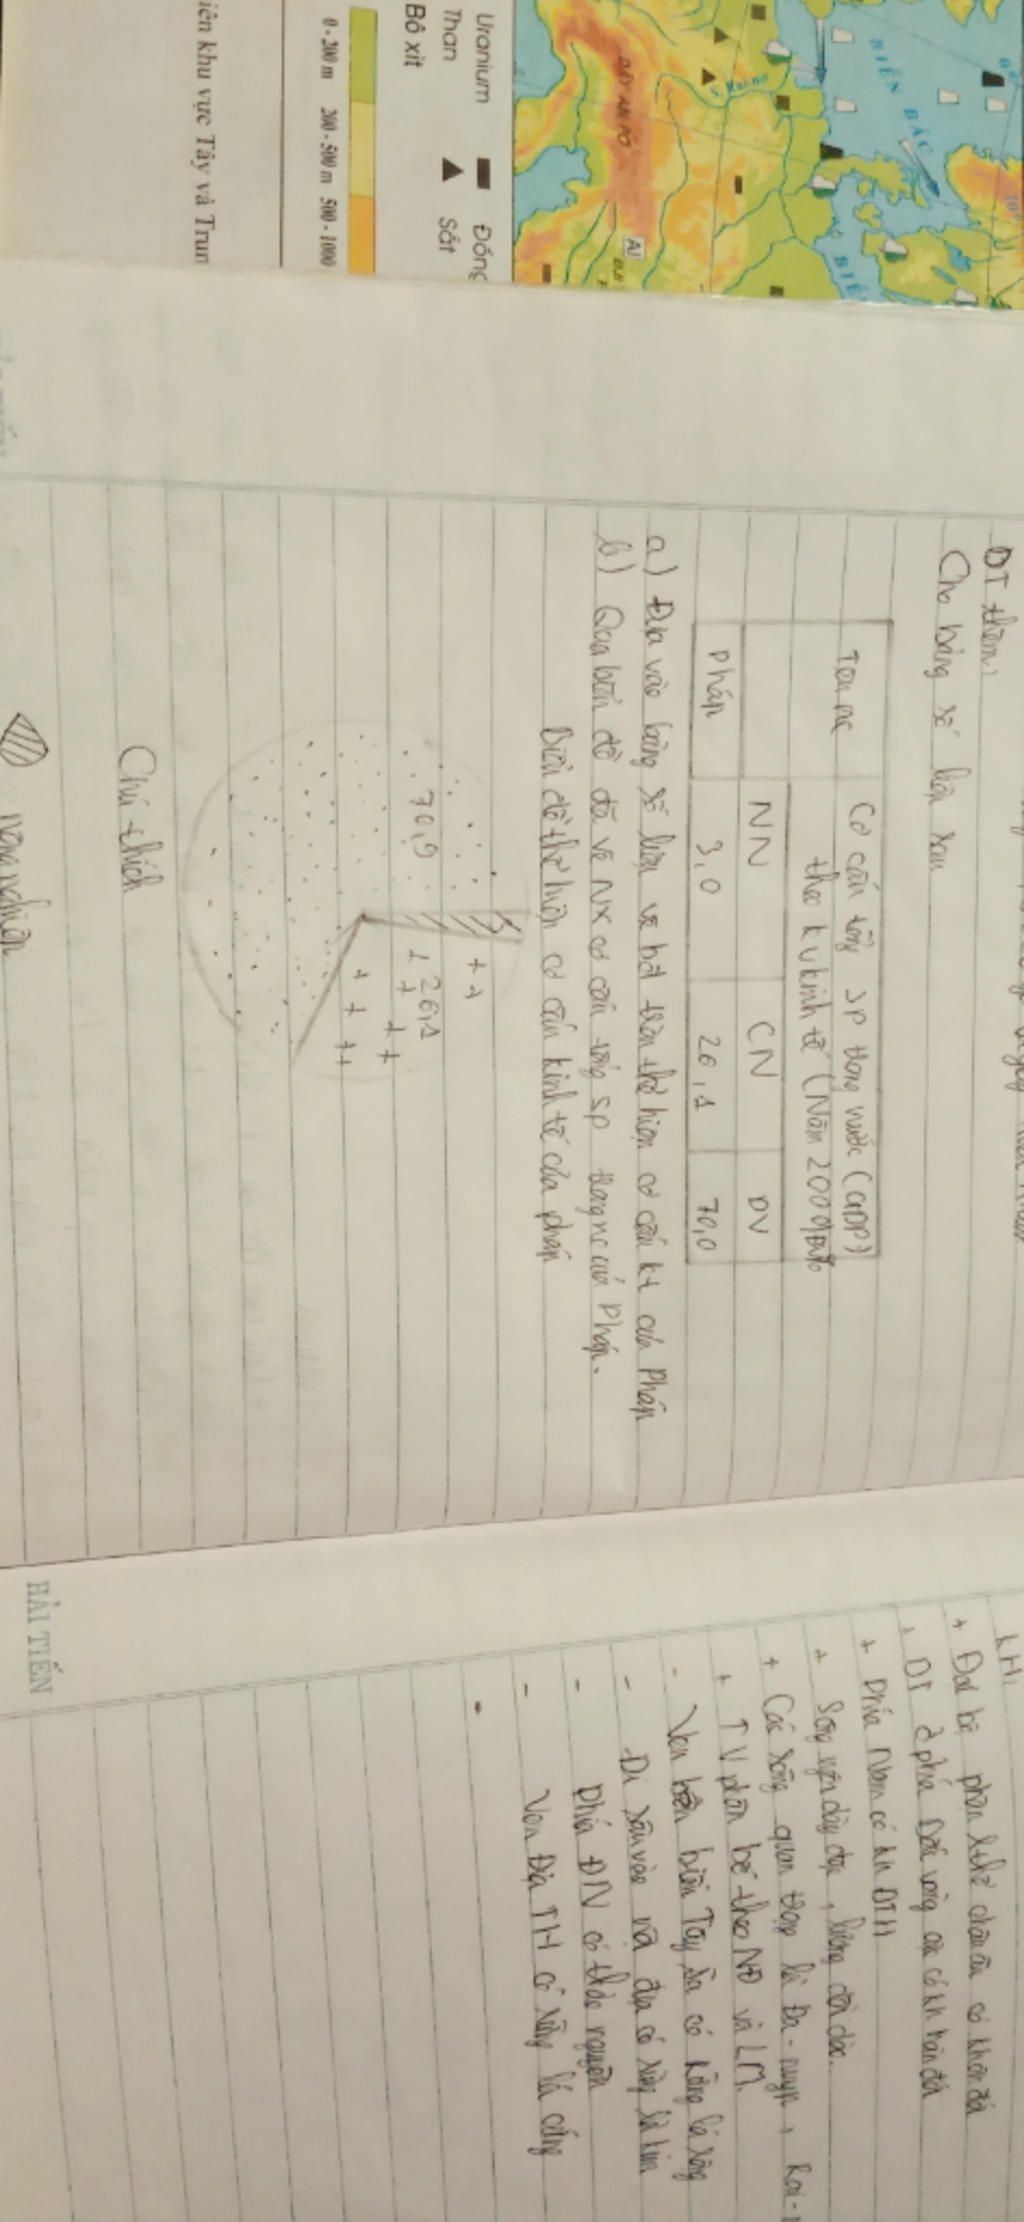 ĐT thêm:
Cho bảng số liệu sau
Tên nc
Cơ cấu tổng sp trong nước (GDP)
theo kv kinh tế (Năm 2000)
NN
CN
DV
Pháp
3,0
26,1
70,0
a) Dựa vào bảng số liệu vẽ bđ tròn thể hiện cơ cấu kt của Pháp
b) Qua biểu đồ đã vẽ NX cơ cấu tổng sp trong nc của Pháp.
Biểu đồ thể hiện cơ cấu kinh tế của pháp
70,9
26,1
Chú thích
nông nghiệp
HẢI TIẾN
KH:
+ Đại bộ phận lthổ châu âu có khí ôn đới
+ DT ở phía Bắc vòng cực có kh hàn đới
+ Phía Nam có kh ĐTH
+ Sông ngòi dày đặc, lượng dồi dào.
+ Các sông quan trọng là Đa-nuyp, Rai-
+ TV phân bố theo NĐ và LM.
- Ven biển Tây Âu có rừng lá rộng
- Đi sâu vào nội địa có rừng lá kim
- Phía ĐN có thảo nguyên
- Ven Địa TH có rừng lá cứng
BIỂN BẮC
BIỂ
DÃY AN PƠ
S. Rai-nơ
AU
Uranium
Đồng
Than
Sắt
Bô xit
0 - 200 m
200 - 500 m
500 - 1000
iên khu vực Tây và Trun